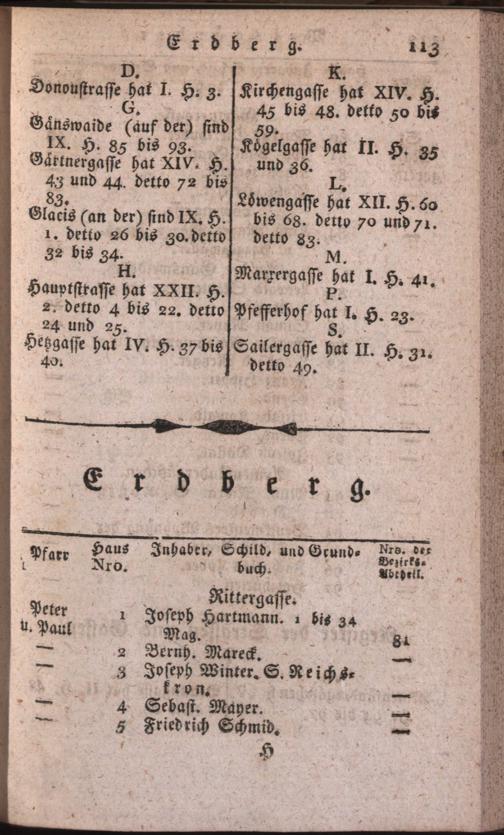 Erdberg. 113
D.
Donoustrasse hat I. H. 3.
G.
Gänswaide (auf der) sind
IX. H. 85 bis 93.
Gärtnergasse hat XIV. H.
43 und 44. detto 72 bis
83.
Glacis (an der) sind IX. H.
1. detto 26 bis 30. detto
32 bis 34.
H.
Hauptstrasse hat XXII. H.
2. detto 4 bis 22. detto
24 und 25.
Hetzgasse hat IV. H. 37 bis
40.
K.
Kirchengasse hat XIV. H.
45 bis 48. detto 50 bis
59.
Kögelgasse hat II. H. 35
und 36.
L.
Löwengasse hat XII. H. 60
bis 68. detto 70 und 71.
detto 83.
M.
Marxergasse hat I. H. 41.
P.
Pfefferhof hat I. H. 23.
S.
Sailergasse hat II. H. 31.
detto 49.
Erdberg.
Pfarr Haus Nro. Inhaber, Schild, und Grund-
buch. Nro. der Bezirks-Abtheil.
Rittergasse.
Peter 1 Joseph Hartmann. 1 bis 34
u. Paul Mag. 81
— 2 Bernh. Mareck. —
— 3 Joseph Winter. S. Reichs-
kron.
— 4 Sebast. Mayer. —
— 5 Friedrich Schmid. —
H